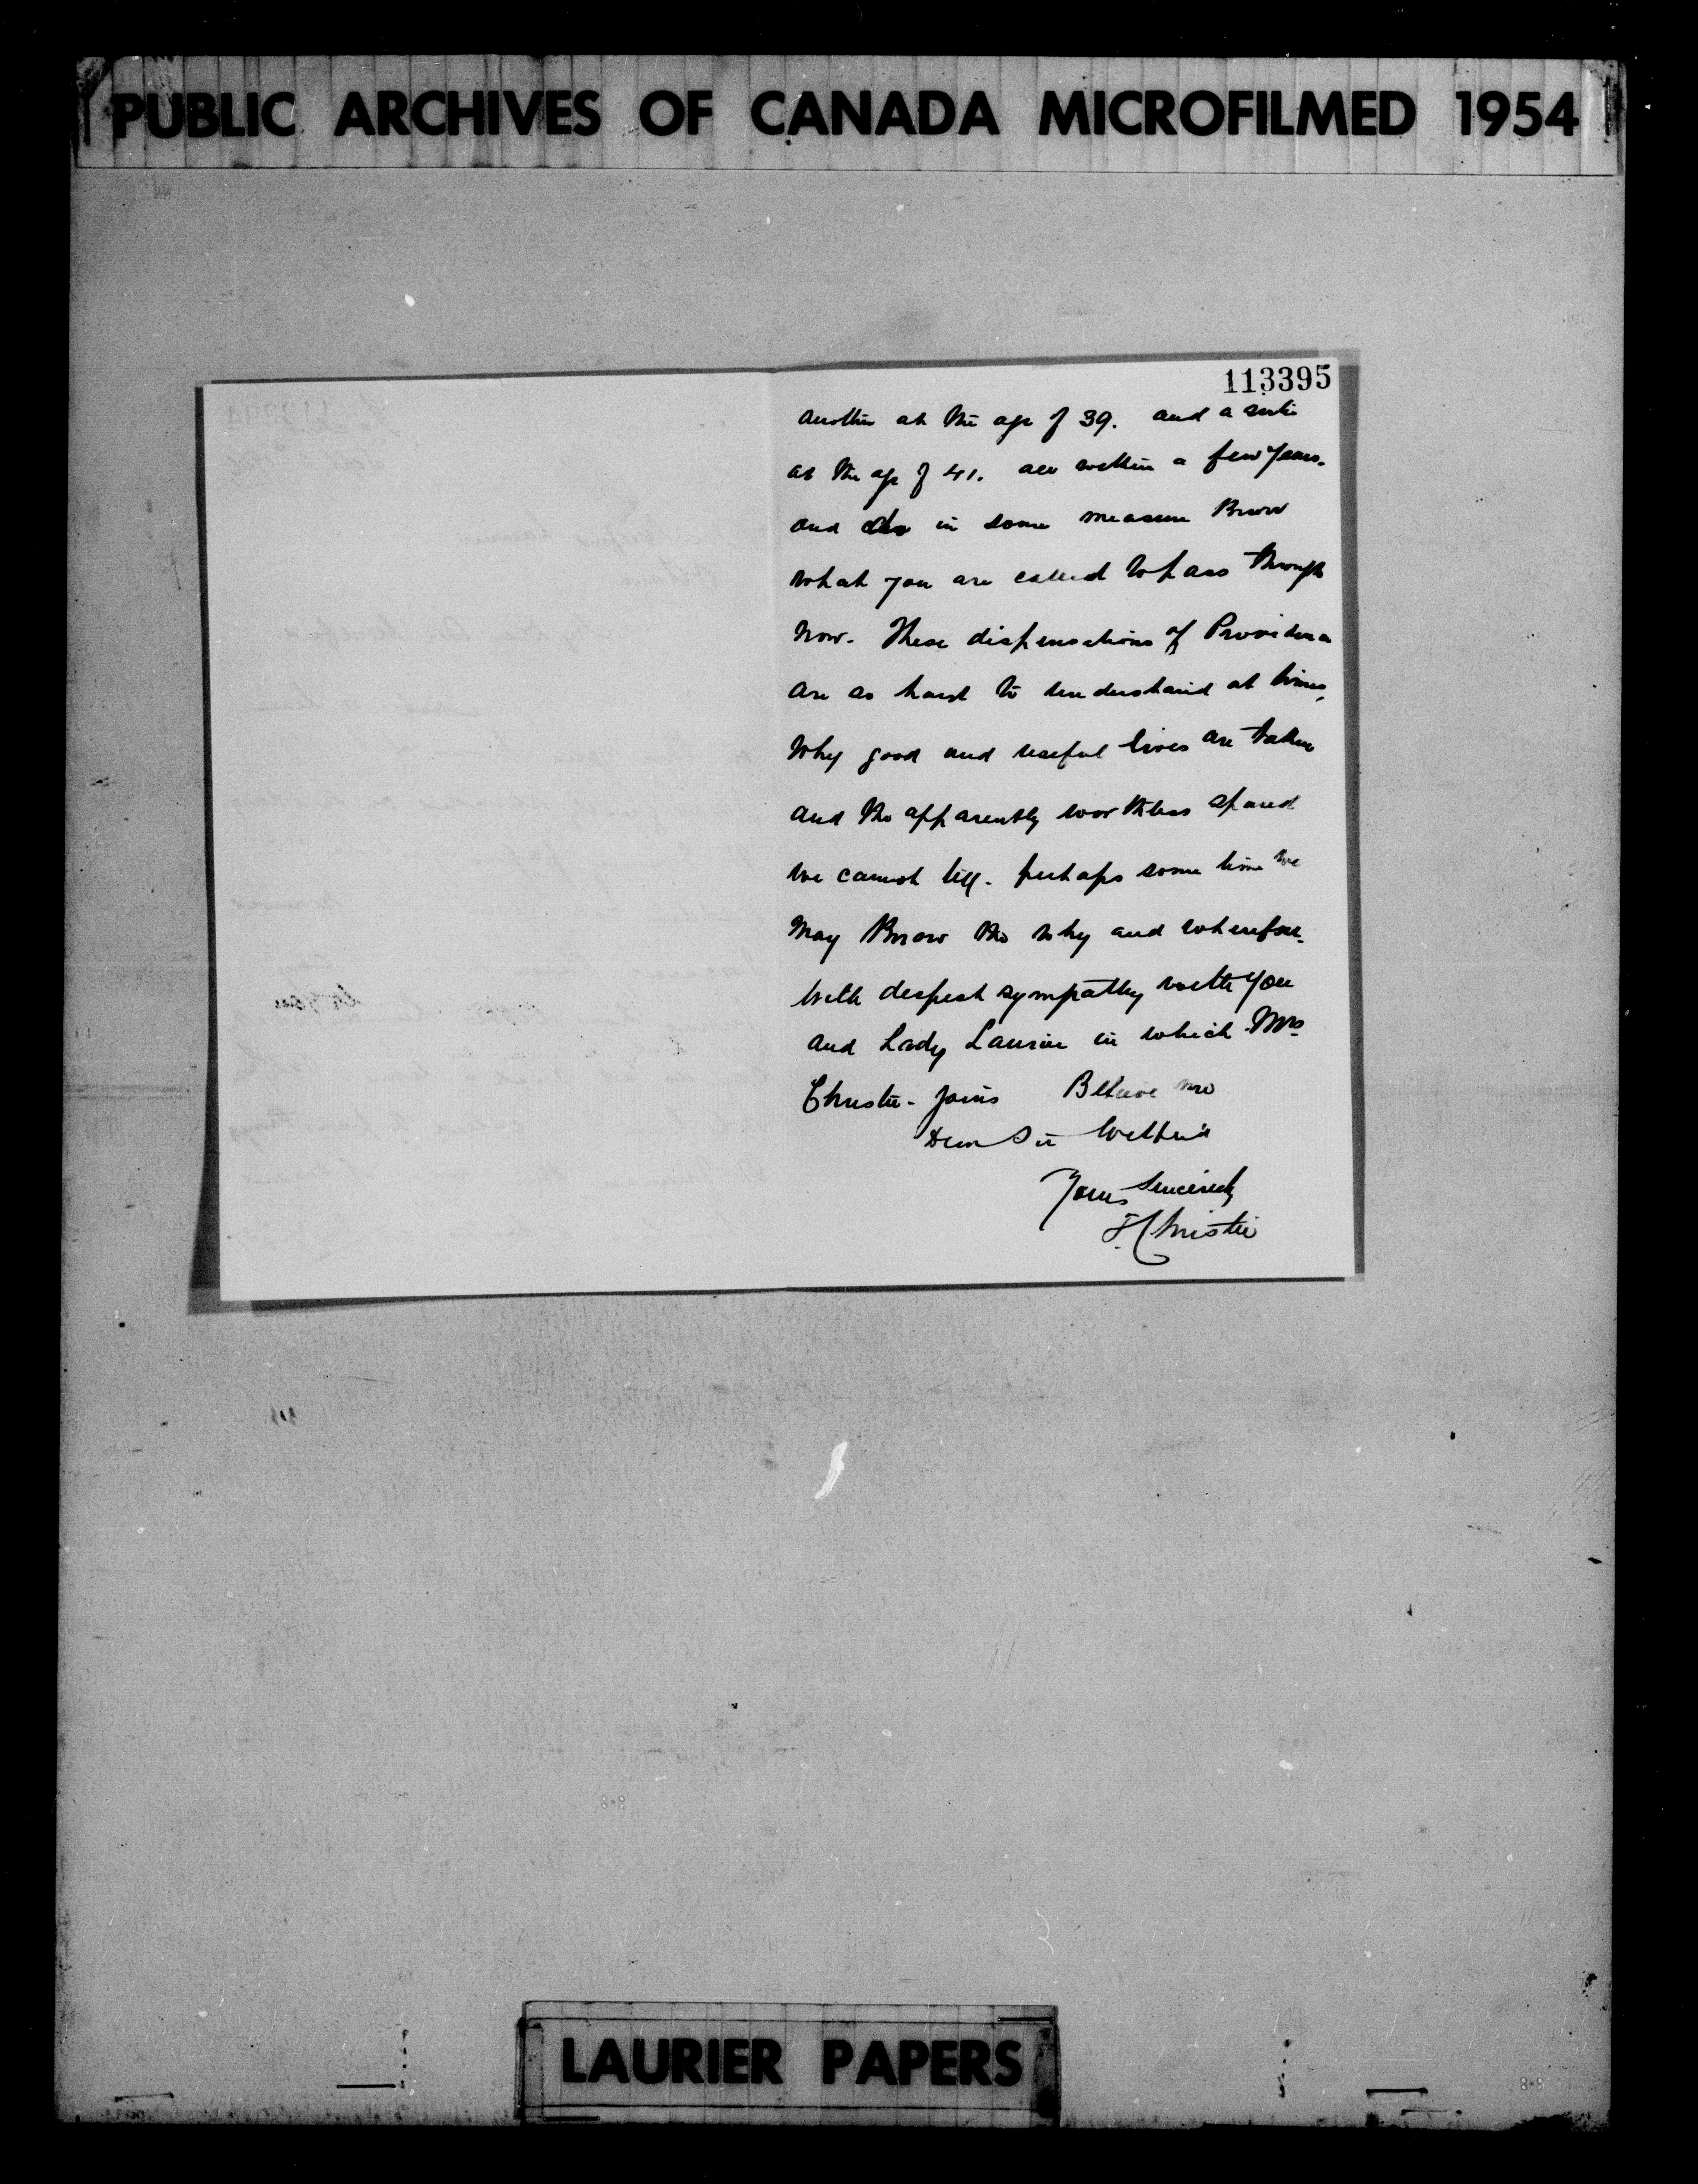 PUBLIC ARCHIVES OF CANADA MICROFILMED 1954
113395
another at the age of 39. and a sister
at the age of 41. all within a few years.
and do in some measure know
what you are called to pass through
now. These dispensations of Providence
are so hard to understand at times,
Why good and useful lives are taken
and the apparently worthless spared
we cannot tell. perhaps some time we
may know the why and wherefore.
With deepest sympathy with you
and Lady Laurier in which Mrs
Christie joins Believe me
Dear Sir Wilfrid
Yours Sincerely
Christie
LAURIER PAPERS